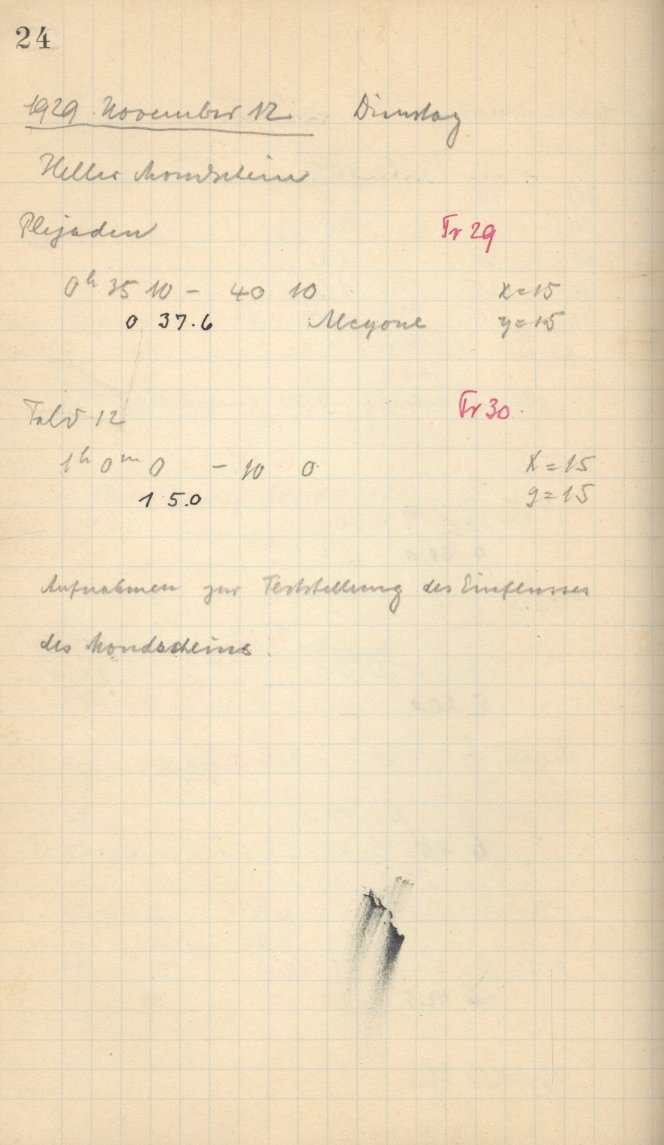 24
1929 November 12 Dienstag
Heller Mondschein
Plejaden Tr 29
0h 35 10 - 40 10 x=15
0 37.6 Alcyone y=15
Feld 12 Tr 30
1h 0m 0 - 10 0 x=15
1 5.0 y=15
Aufnahmen zur Feststellung des Einflusses
des Mondscheins.